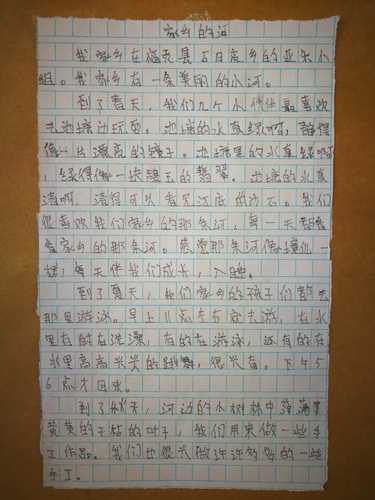 家乡的河
我家乡在福贡县石月亮乡的亚朵小
组。我家乡有一条美丽的小河。
到了春天，我们几个小伙伴最喜欢
去池塘边玩耍。池塘的水真绿啊，静得
像一片漂亮的镜子。池塘里的水真绿啊
，绿得像一块碧玉的翡翠。池塘的水真
清啊，清得可以看见河底的沙石。我们
很喜欢我们家乡的那条河，每一天都会
看家乡的那条河。感觉那条河像摸仙一
样，每天伴我们成长，入睡。
到了夏天，我们家乡的孩子们都去
那里游泳。早上11点左右就去游，在水
里有的在洗澡，有的在游泳，还有的在
水里高高兴兴的跳舞，很兴奋。下午5
6点才回来。
到了秋天，河边的小树林中落满了
黄黄的干枯的叶子，我们用来做一些手
工作品。我们也很兴做许许多多的一些
手工。